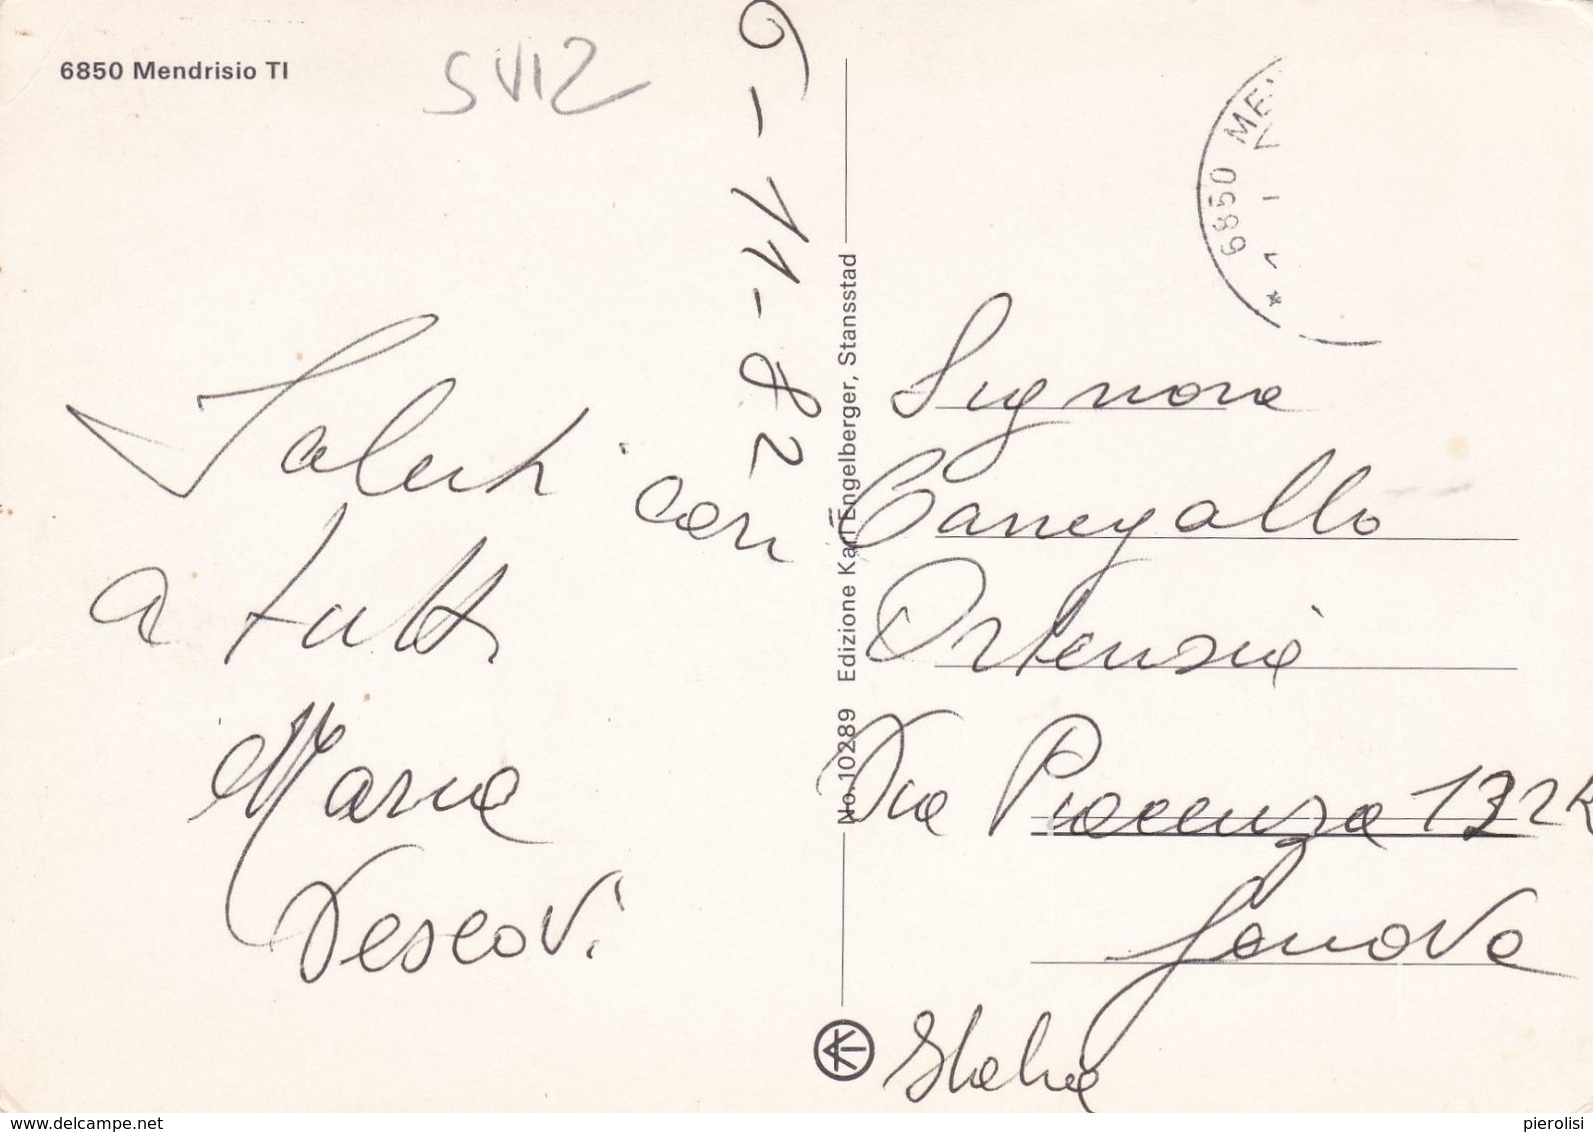 6850 Mendrisio TI
SVIZ
6-11-82
Saluti cari
a tutti
Maria
Vescovi
No. 10289 Edizione Karl Engelberger, Stansstad
6850 ME
Signora
Canegallo
Ortensia
Via Piacenza 132R
Genova
Italia
www.delcampe.net
pierolisi